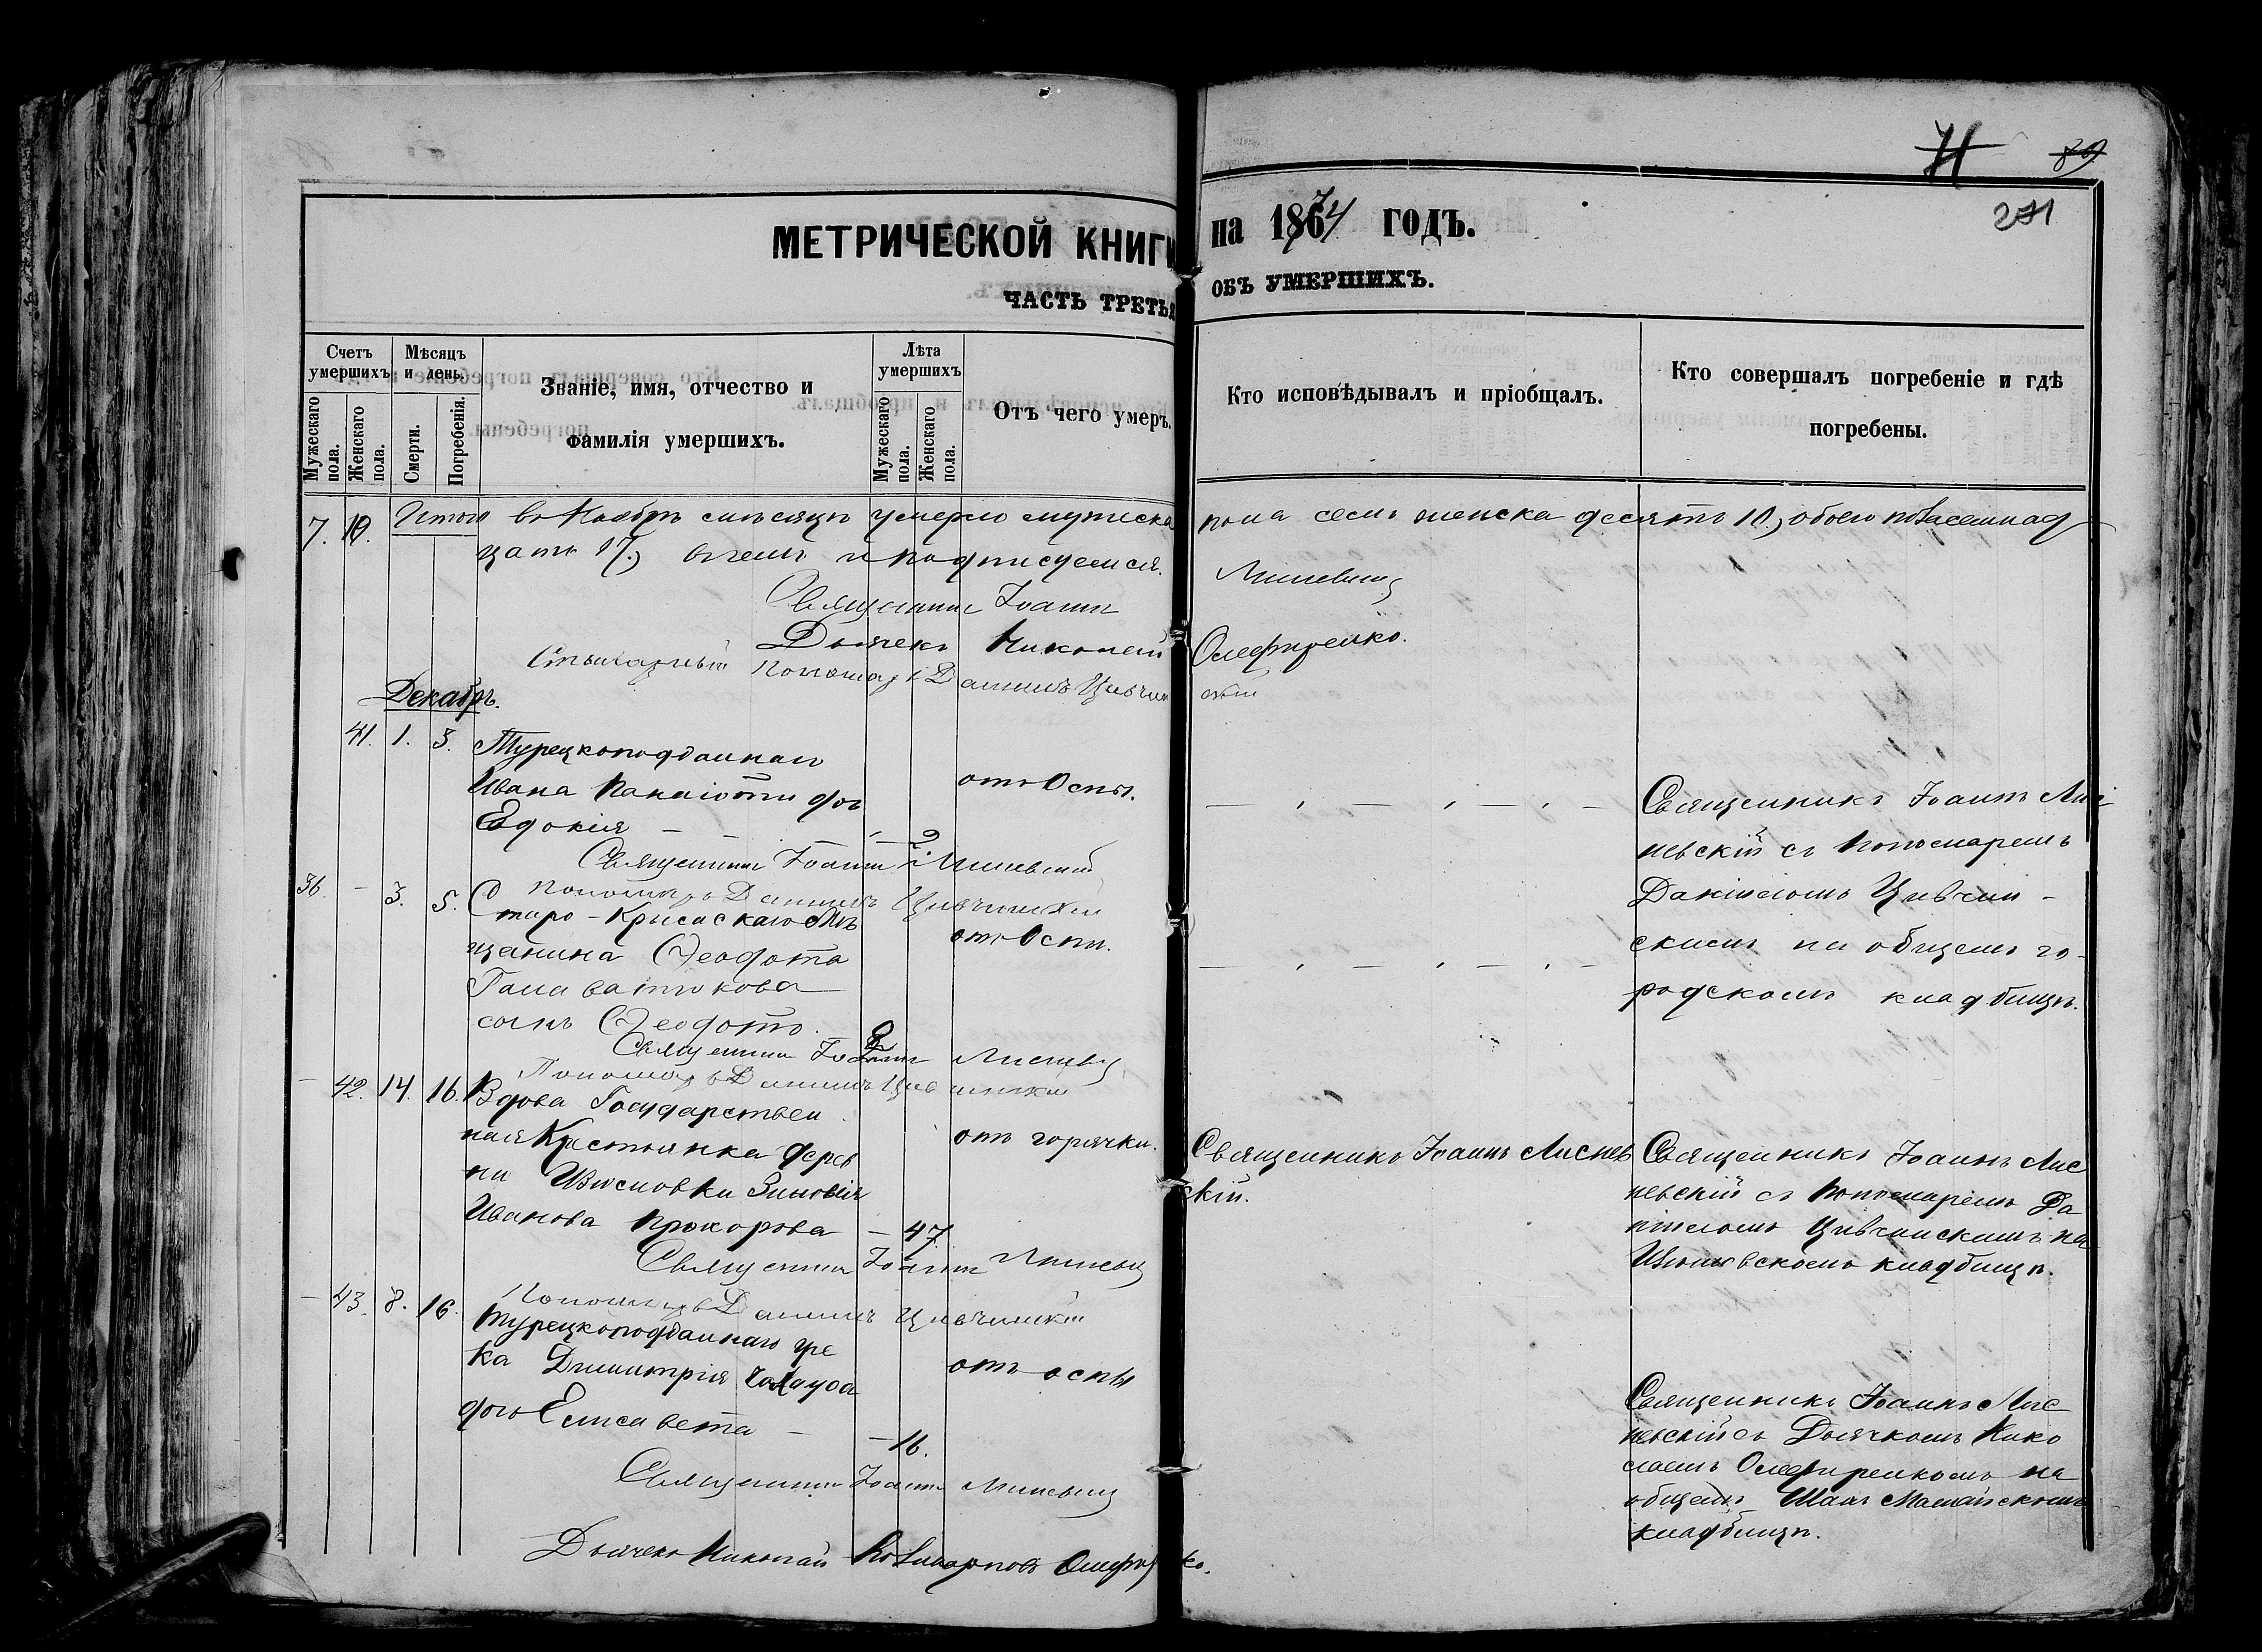 71 89
МЕТРИЧЕСКОЙ КНИГИ на 1874 годъ.
201
ЧАСТЬ ТРЕТЬЯ ОБЪ УМЕРШИХЪ.
Счетъ умершихъ.
Мужескаго пола.
Женскаго пола.
Мѣсяцъ и день.
Смерти.
Погребенія.
Званіе, имя, отчество и
фамилія умершихъ.
Лѣта умершихъ
Мужескаго пола.
Женскаго пола.
Отъ чего умеръ.
Кто исповѣдывалъ и пріобщалъ.
Кто совершалъ погребеніе и гдѣ
погребены.
7. 10. Итого въ Ноябрѣ мѣсяцѣ умерло мужеска пола семь женска десять 10, обоего пола семнад
цать 17, въ чемъ и подписуемся.
Священникъ Іоаннъ
Дьячекъ Николай Олефиренко.
Пономарь Даніилъ Цивчинскій
Декабрь.
41. 1. 3. Турецкоподданнаго
Ивана Панаіоти дочь
Евдокія — 2
отъ Оспы.
Священникъ Іоаннъ Лис
невскій съ Пономаремъ
Даніиломъ Цивчин-
скимъ на общемъ го-
родскомъ кладбищѣ.
Священникъ Іоаннъ
Пономарь Даніилъ Цивчинскій
36. — 3. 5. Старо-Крымскаго Мѣ
щанина Ѳеодота
сынъ Ѳеодотъ.
отъ Оспы.
Священникъ Іоаннъ
Пономарь Даніилъ Цивчинскій
— 42. 14. 16. Вдова Государствен
ная Крестьянка дерев
ни Изюмовки Зиновія
Иванова Прохорова — 47.
отъ горячки.
Священникъ Іоаннъ Лиснев
скій.
Священникъ Іоаннъ Лис
невскій съ Пономаремъ Да
ніиломъ Цивчинскимъ на
Изюмовскомъ кладбищѣ.
Священникъ Іоаннъ
Пономарь Даніилъ Цивчинскій
— 43. 8. 16. Турецкоподданнаго гре
ка Димитрія
дочь Елисавета — 16.
отъ оспы
Священникъ Іоаннъ Лис
невскій съ Дьячкомъ Нико
лаемъ Олефиренкомъ на
общемъ Шахъ Мамайскомъ
кладбищѣ.
Священникъ Іоаннъ
Дьячекъ Николай Олефиренко.